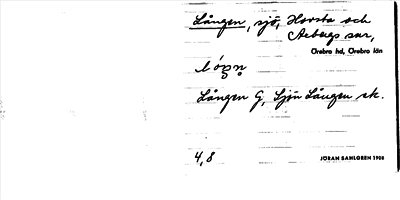 Lången, sjö, Hovsta och
Axbergs snr,
Örebro hd, Örebro län
Lången G, Sjön Lången sk.
4,8
JÖRAN SAHLGREN 1908